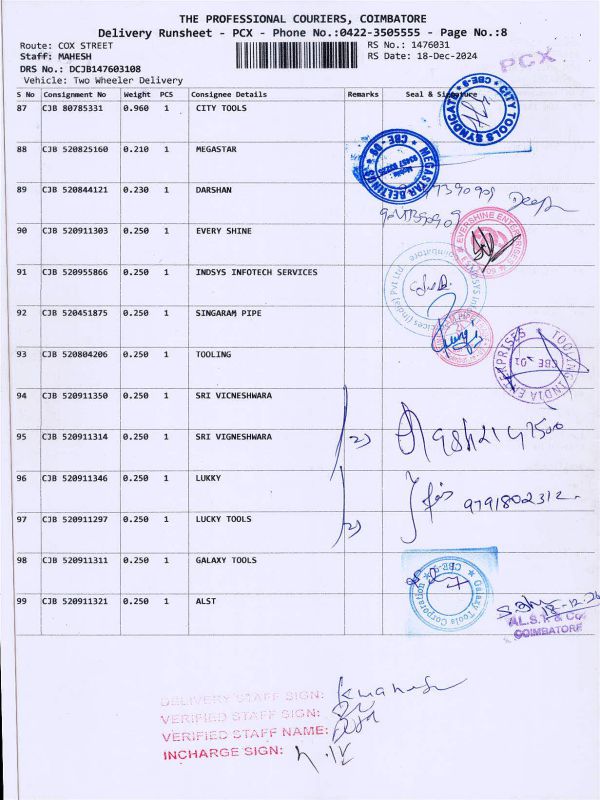 THE PROFESSIONAL COURIERS, COIMBATORE
Delivery Runsheet - PCX - Phone No.:0422-3505555 - Page No.:8
Route: COX STREET
RS No.: 1476031
Staff: MAHESH
RS Date: 18-Dec-2024
PCX
DRS No.: DCJB147603108
Vehicle: Two Wheeler Delivery
S No Consignment No Weight PCS Consignee Details Remarks Seal & Signature
87 CJB 80785331 0.960 1 CITY TOOLS
CITY TOOLS SYNDICATE CBE-9
88 CJB 520825160 0.210 1 MEGASTAR
MEGASTAR BELTINGS CBE - 09
89 CJB 520844121 0.230 1 DARSHAN
90 CJB 520911303 0.250 1 EVERY SHINE
EVERSHINE ENTERPRISES
91 CJB 520955866 0.250 1 INDSYS INFOTECH SERVICES
(India) Pvt Ltd Coimbatore
92 CJB 520451875 0.250 1 SINGARAM PIPE
93 CJB 520804206 0.250 1 TOOLING
TOOLING INDIA ENTERPRISES CBE -01
94 CJB 520911350 0.250 1 SRI VICNESHWARA
95 CJB 520911314 0.250 1 SRI VIGNESHWARA 2)
96 CJB 520911346 0.250 1 LUKKY
9791802312.
97 CJB 520911297 0.250 1 LUCKY TOOLS 2)
98 CJB 520911311 0.250 1 GALAXY TOOLS
Galaxy Tools Corporation CBE-9
99 CJB 520911321 0.250 1 ALST
18-12-24
AL.S.T. & Co.
COIMBATORE
DELIVERY STAFF SIGN: K mahesh
VERIFIED STAFF SIGN:
VERIFIED STAFF NAME:
INCHARGE SIGN: